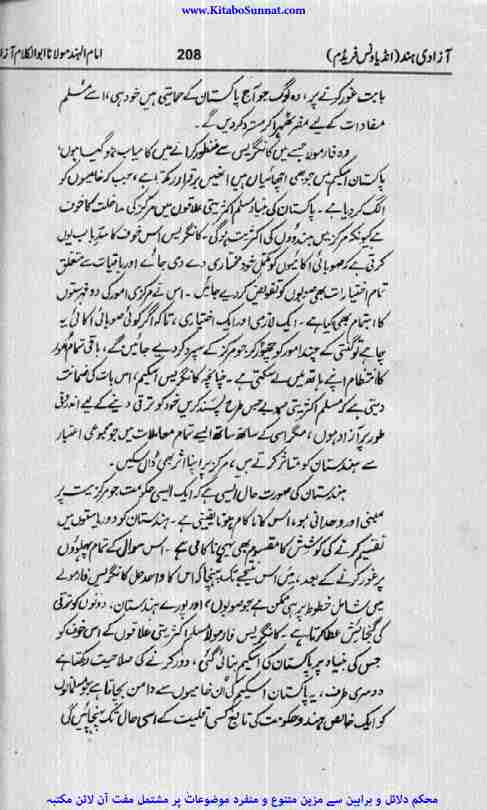 www.KitaboSunnat.com
آزادی ہند (انڈیا ونس فریڈم) 208 امام الہند مولانا ابوالکلام آزا
بابت غور کرنے پر، وہ لوگ جو آج پاکستان کے حمایتی ہیں خود ہی، اسے مسلم
مفادات کے لیے مضر ٹھہرا کر مسترد کردیں گے۔
وہ فارمولا جسے میں کانگریس سے منظور کرانے میں کامیاب ہو گیا ہوں،
پاکستان اسکیم میں جو بھی اچھائیاں ہیں انھیں برقرار رکھتا ہے، جب کہ خامیوں کو
الگ کر دیا ہے۔ پاکستان کی بنیاد مسلم اکثریتی علاقوں میں مرکز کی مداخلت کا خوف
ہے کیونکہ مرکز میں ہندوؤں کی اکثریت ہوگی۔ کانگریس اس خوف کا سدِّباب یوں
کرتی ہے کہ صوبائی اکائیوں کو مکمل خود مختاری دے دی جائے اور باقیات سے متعلق
تمام اختیارات بھی صوبوں کو تفویض کر دیے جائیں۔ اس نے مرکزی امور کی دو فہرستوں
کا اہتمام بھی کیا ہے۔ ایک لازمی اور ایک اختیاری، تاکہ اگر کوئی صوبائی اکائی یہ
چاہے تو گنتی کے چند امور کو چھوڑ کر جو مرکز کے سپرد کر دیے جائیں گے، باقی تمام امور
کا انتظام اپنے ہاتھ میں لے سکتی ہے۔ چنانچہ کانگریس اسکیم، اس بات کی ضمانت
دیتی ہے کہ مسلم اکثریتی صوبے جس طرح پسند کریں خود کو ترقی دینے کے لیے اندرونی
طور پر آزاد ہوں، مگر اسی کے ساتھ ساتھ ایسے تمام معاملات میں جو مجموعی اعتبار
سے ہندستان کو متاثر کرتے ہیں، مرکز پر اپنا اثر بھی ڈال سکیں۔
ہندستان کی صورت حال ایسی ہے کہ ایک ایسی حکومت جو مرکزیت پر
مبنی اور وحدانی ہو، اس کا ناکام ہونا یقینی ہے۔ ہندستان کو دو ریاستوں میں
تقسیم کرنے کی کوشش کا مقسوم بھی یہی ناکامی ہے۔ اس سوال کے تمام پہلوؤں
پر غور کرنے کے بعد، میں اس نتیجے تک پہنچا کہ اس کا واحد حل کانگریس فارمولے
میں شامل خطوط پر ہی ممکن ہے جو صوبوں، اور پورے ہندستان، دونوں کو ترقی
کی گنجائش عطا کرتا ہے۔ کانگریس فارمولا مسلم اکثریتی علاقوں کے اس خوف کو
جس کی بنیاد پر پاکستان کی اسکیم بنائی گئی، دور کرنے کی صلاحیت رکھتا ہے
دوسری طرف، یہ پاکستان اسکیم کی اُن خامیوں سے دامن بچاتا ہے جو مسلمانوں
کو ایک خالص ہندو حکومت کی تابع کسی اقلیت کے اسی حال تک پہنچائیں گی
محکم دلائل و براہین سے مزین متنوع و منفرد موضوعات پر مشتمل مفت آن لائن مکتبہ